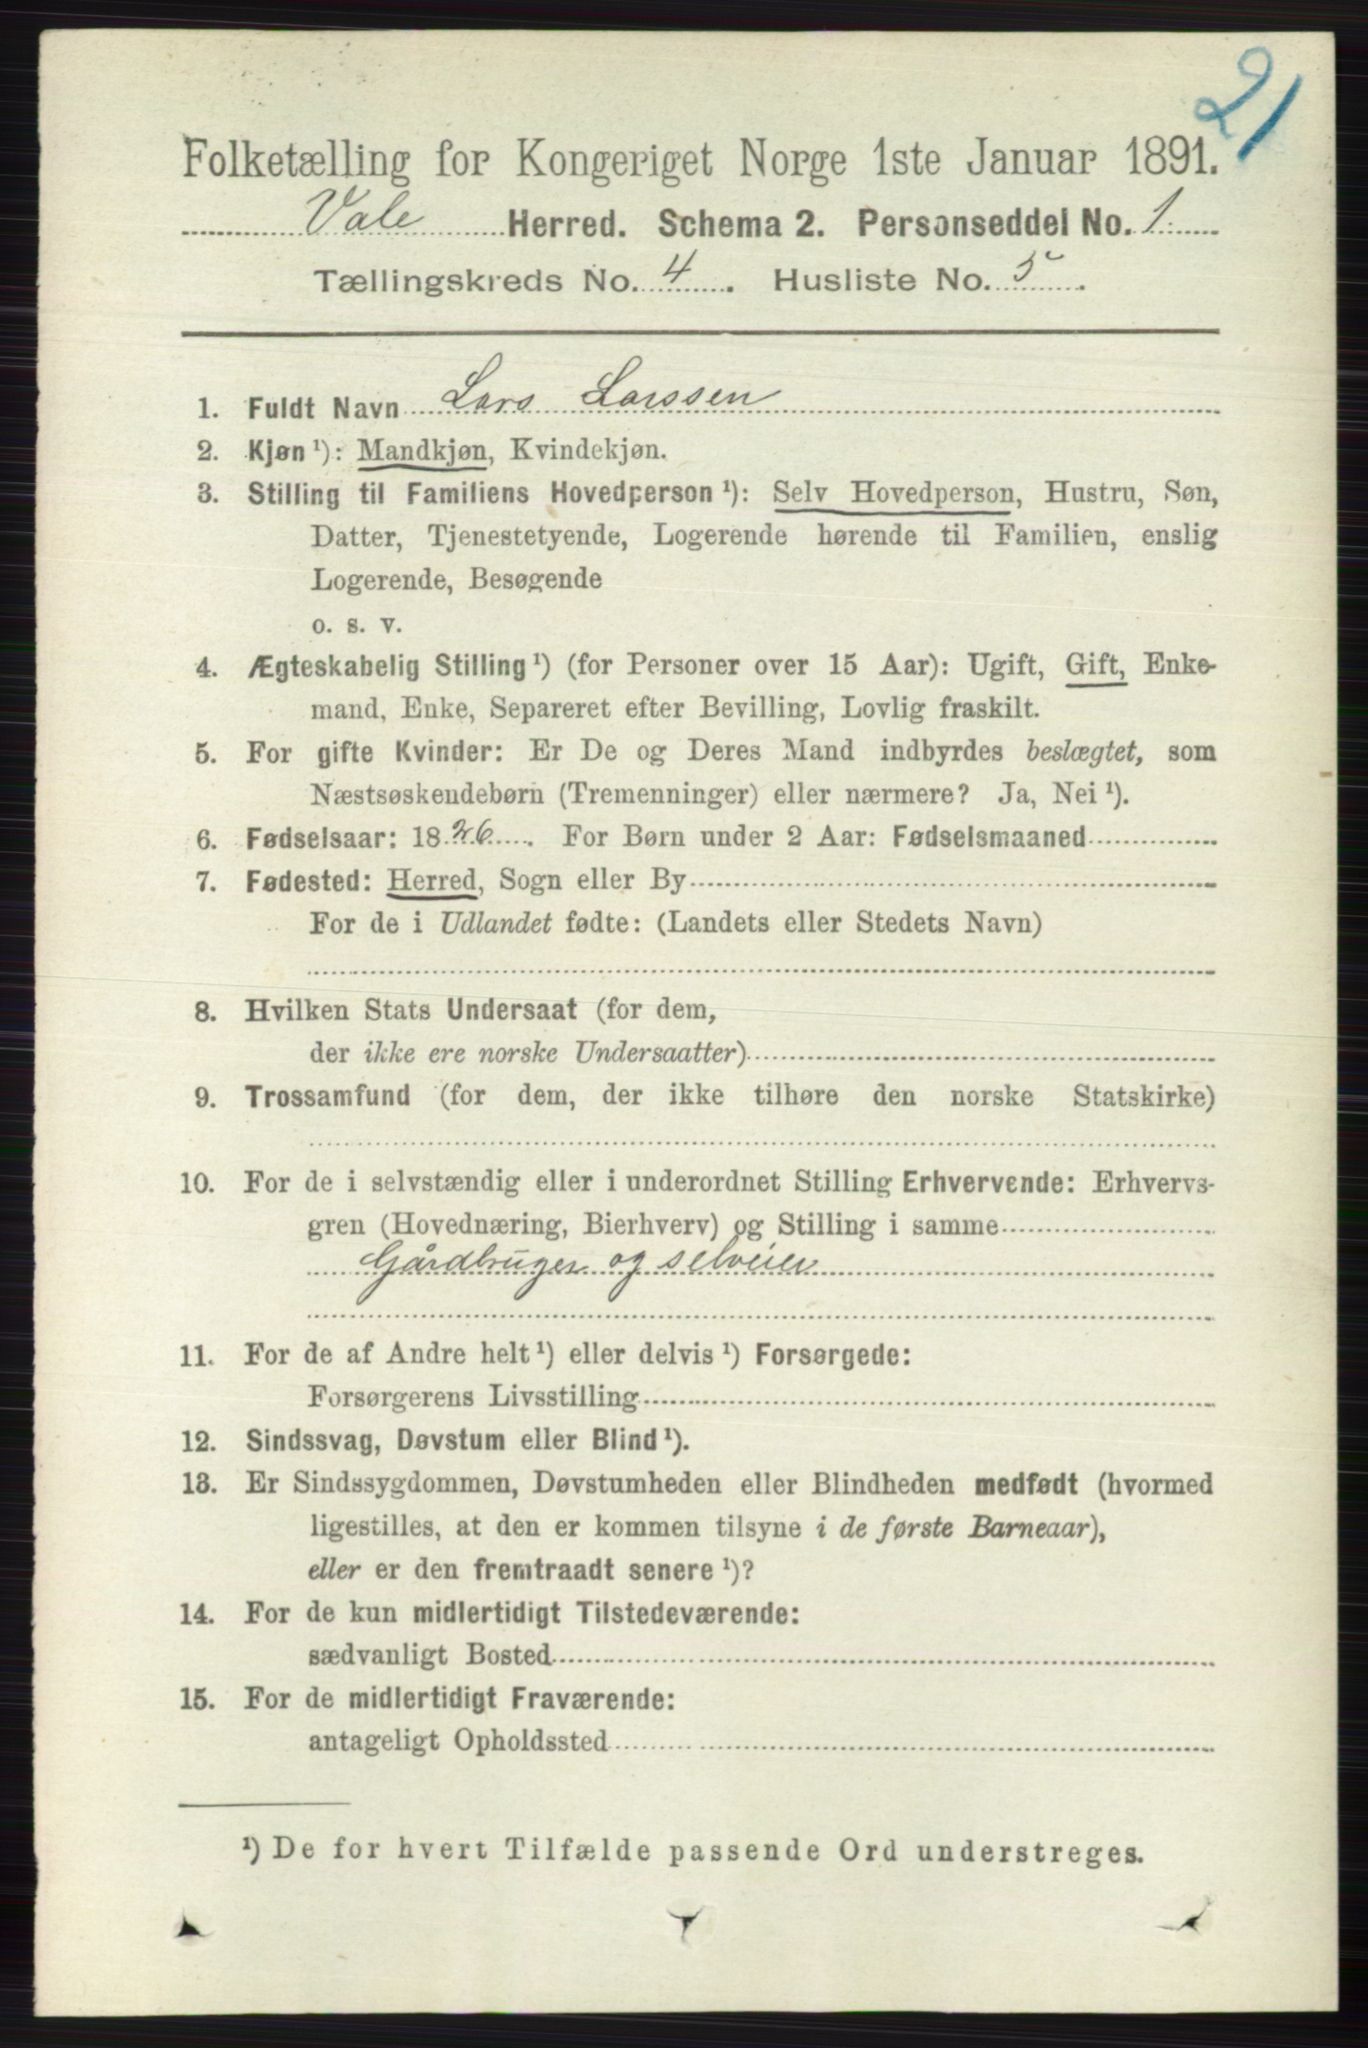 21
Folketælling for Kongeriget Norge 1ste Januar 1891.
Vale Herred. Schema 2. Personseddel No. 1
Tællingskreds No. 4. Husliste No. 5.
1. Fuldt Navn Lars Larssen
2. Kjøn ¹): Mandkjøn, Kvindekjøn.
3. Stilling til Familiens Hovedperson ¹): Selv Hovedperson, Hustru, Søn,
Datter, Tjenestetyende, Logerende hørende til Familien, enslig
Logerende, Besøgende
o. s. v.
4. Ægteskabelig Stilling ¹) (for Personer over 15 Aar): Ugift, Gift, Enke-
mand, Enke, Separeret efter Bevilling, Lovlig fraskilt.
5. For gifte Kvinder: Er De og Deres Mand indbyrdes beslægtet, som
Næstsøskendebørn (Tremenninger) eller nærmere? Ja, Nei ¹).
6. Fødselsaar: 1826. For Børn under 2 Aar: Fødselsmaaned
7. Fødested: Herred, Sogn eller By
For de i Udlandet fødte: (Landets eller Stedets Navn)
8. Hvilken Stats Undersaat (for dem,
der ikke ere norske Undersaatter)
9. Trossamfund (for dem, der ikke tilhøre den norske Statskirke)
10. For de i selvstændig eller i underordnet Stilling Erhvervende: Erhvervs-
gren (Hovednæring, Bierhverv) og Stilling i samme
Gårdbruger og selveier
11. For de af Andre helt ¹) eller delvis ¹) Forsørgede:
Forsørgerens Livsstilling
12. Sindssvag, Døvstum eller Blind ¹).
13. Er Sindssygdommen, Døvstumheden eller Blindheden medfødt (hvormed
ligestilles, at den er kommen tilsyne i de første Barneaar),
eller er den fremtraadt senere ¹)?
14. For de kun midlertidigt Tilstedeværende:
sædvanligt Bosted
15. For de midlertidigt Fraværende:
antageligt Opholdssted
¹) De for hvert Tilfælde passende Ord understreges.